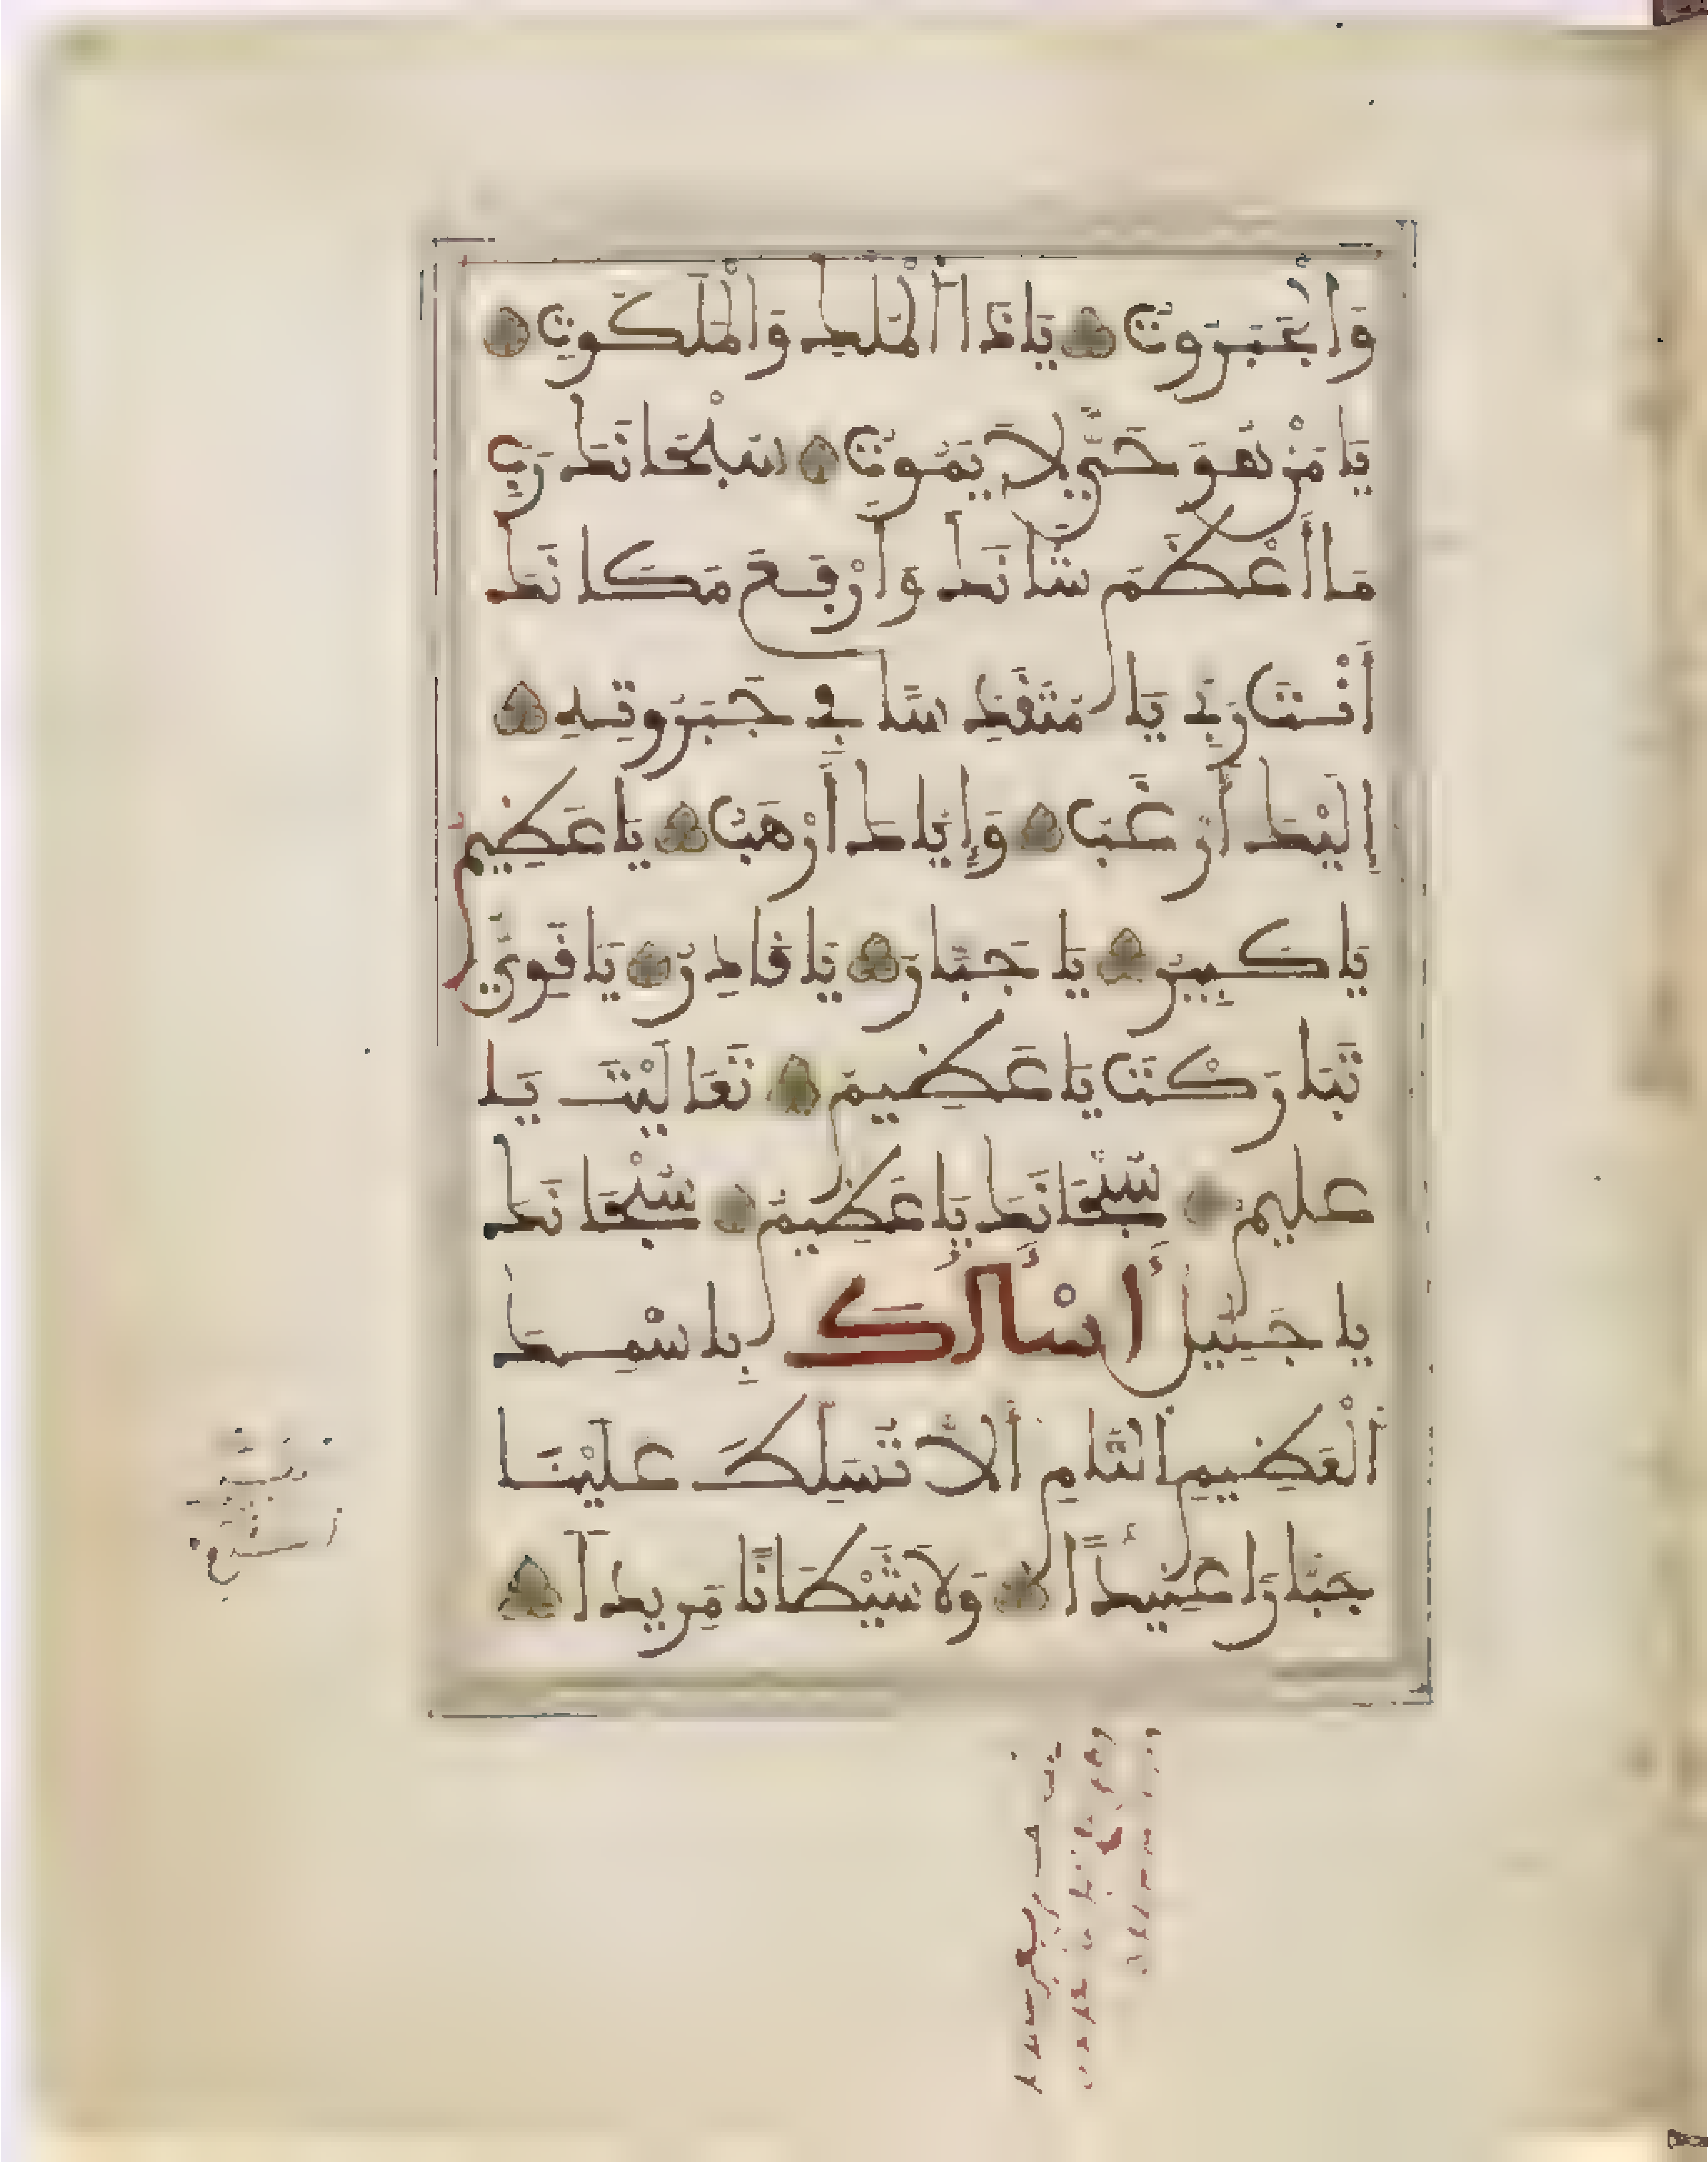 وَالْجَبَرُوتِ يَا ذَا الْمُلْكِ وَالْمَلَكُوتِ
يَا مَنْ هُوَ حَيٌّ لَا يَمُوتُ سُبْحَانَكَ رَبِّ
مَا أَعْظَمَ شَانَكَ وَأَرْفَعَ مَكَانَكَ
أَنْتَ رَبِّي يَا مُتَقَدِّسًا فِي جَبَرُوتِهِ
إِلَيْكَ أَرْغَبُ وَإِيَّاكَ أَرْهَبُ يَا عَظِيمُ
يَا كَبِيرُ يَا جَبَّارُ يَا قَادِرُ يَا قَوِيُّ
تَبَارَكْتَ يَا عَظِيمُ تَعَالَيْتَ يَا
عَلِيمُ سُبْحَانَكَ يَا عَظِيمُ سُبْحَانَكَ
يَا جَلِيلُ أَسْأَلُكَ بِاسْمِكَ
الْعَظِيمِ التَّامِّ أَلَّا تُسَلِّطَ عَلَيْنَا
جَبَّارًا عَنِيدًا وَلَا شَيْطَانًا مَرِيدًا